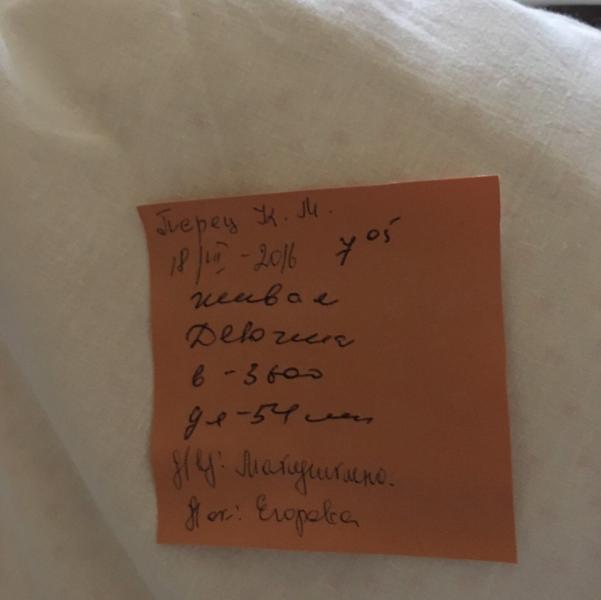 Перец К. М.
18/III - 2016 7 05
живая
Девочка
в - 3600
дл - 54 см
Егорова